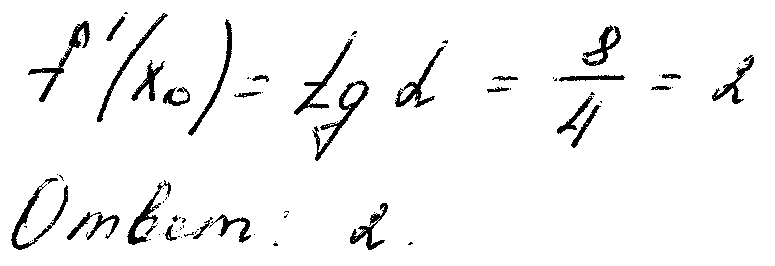 f'(x₀) = tg α = 8/4 = 2
Ответ: 2.